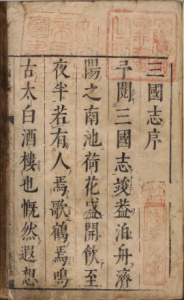 三國志序
予閱三國志竣益泊舟濟
陽之南池荷花盛開飲至
夜半若有人焉歌鶴焉鳴
古太白酒樓也慨然遐想